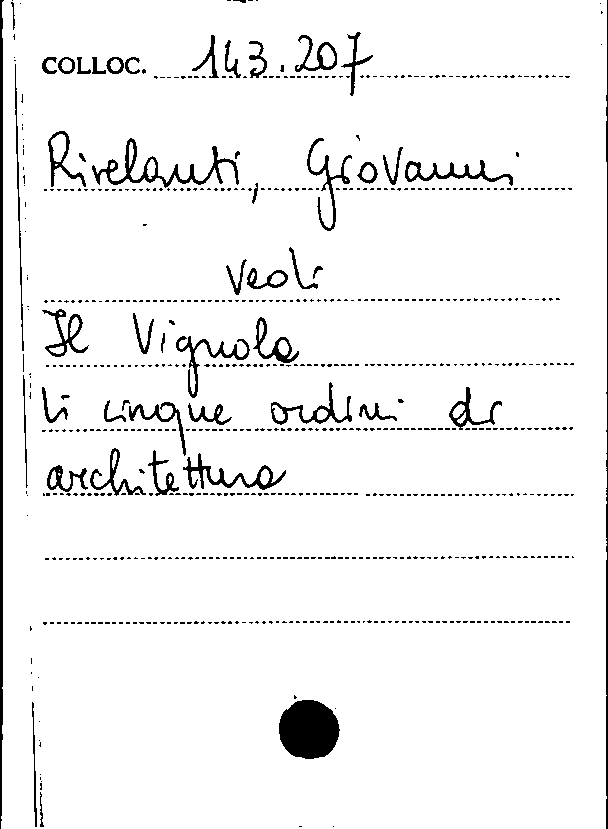 COLLOC. 143.207
Rivelanti, Giovanni
Vedi
Il Vignola
li cinque ordini di
architettura